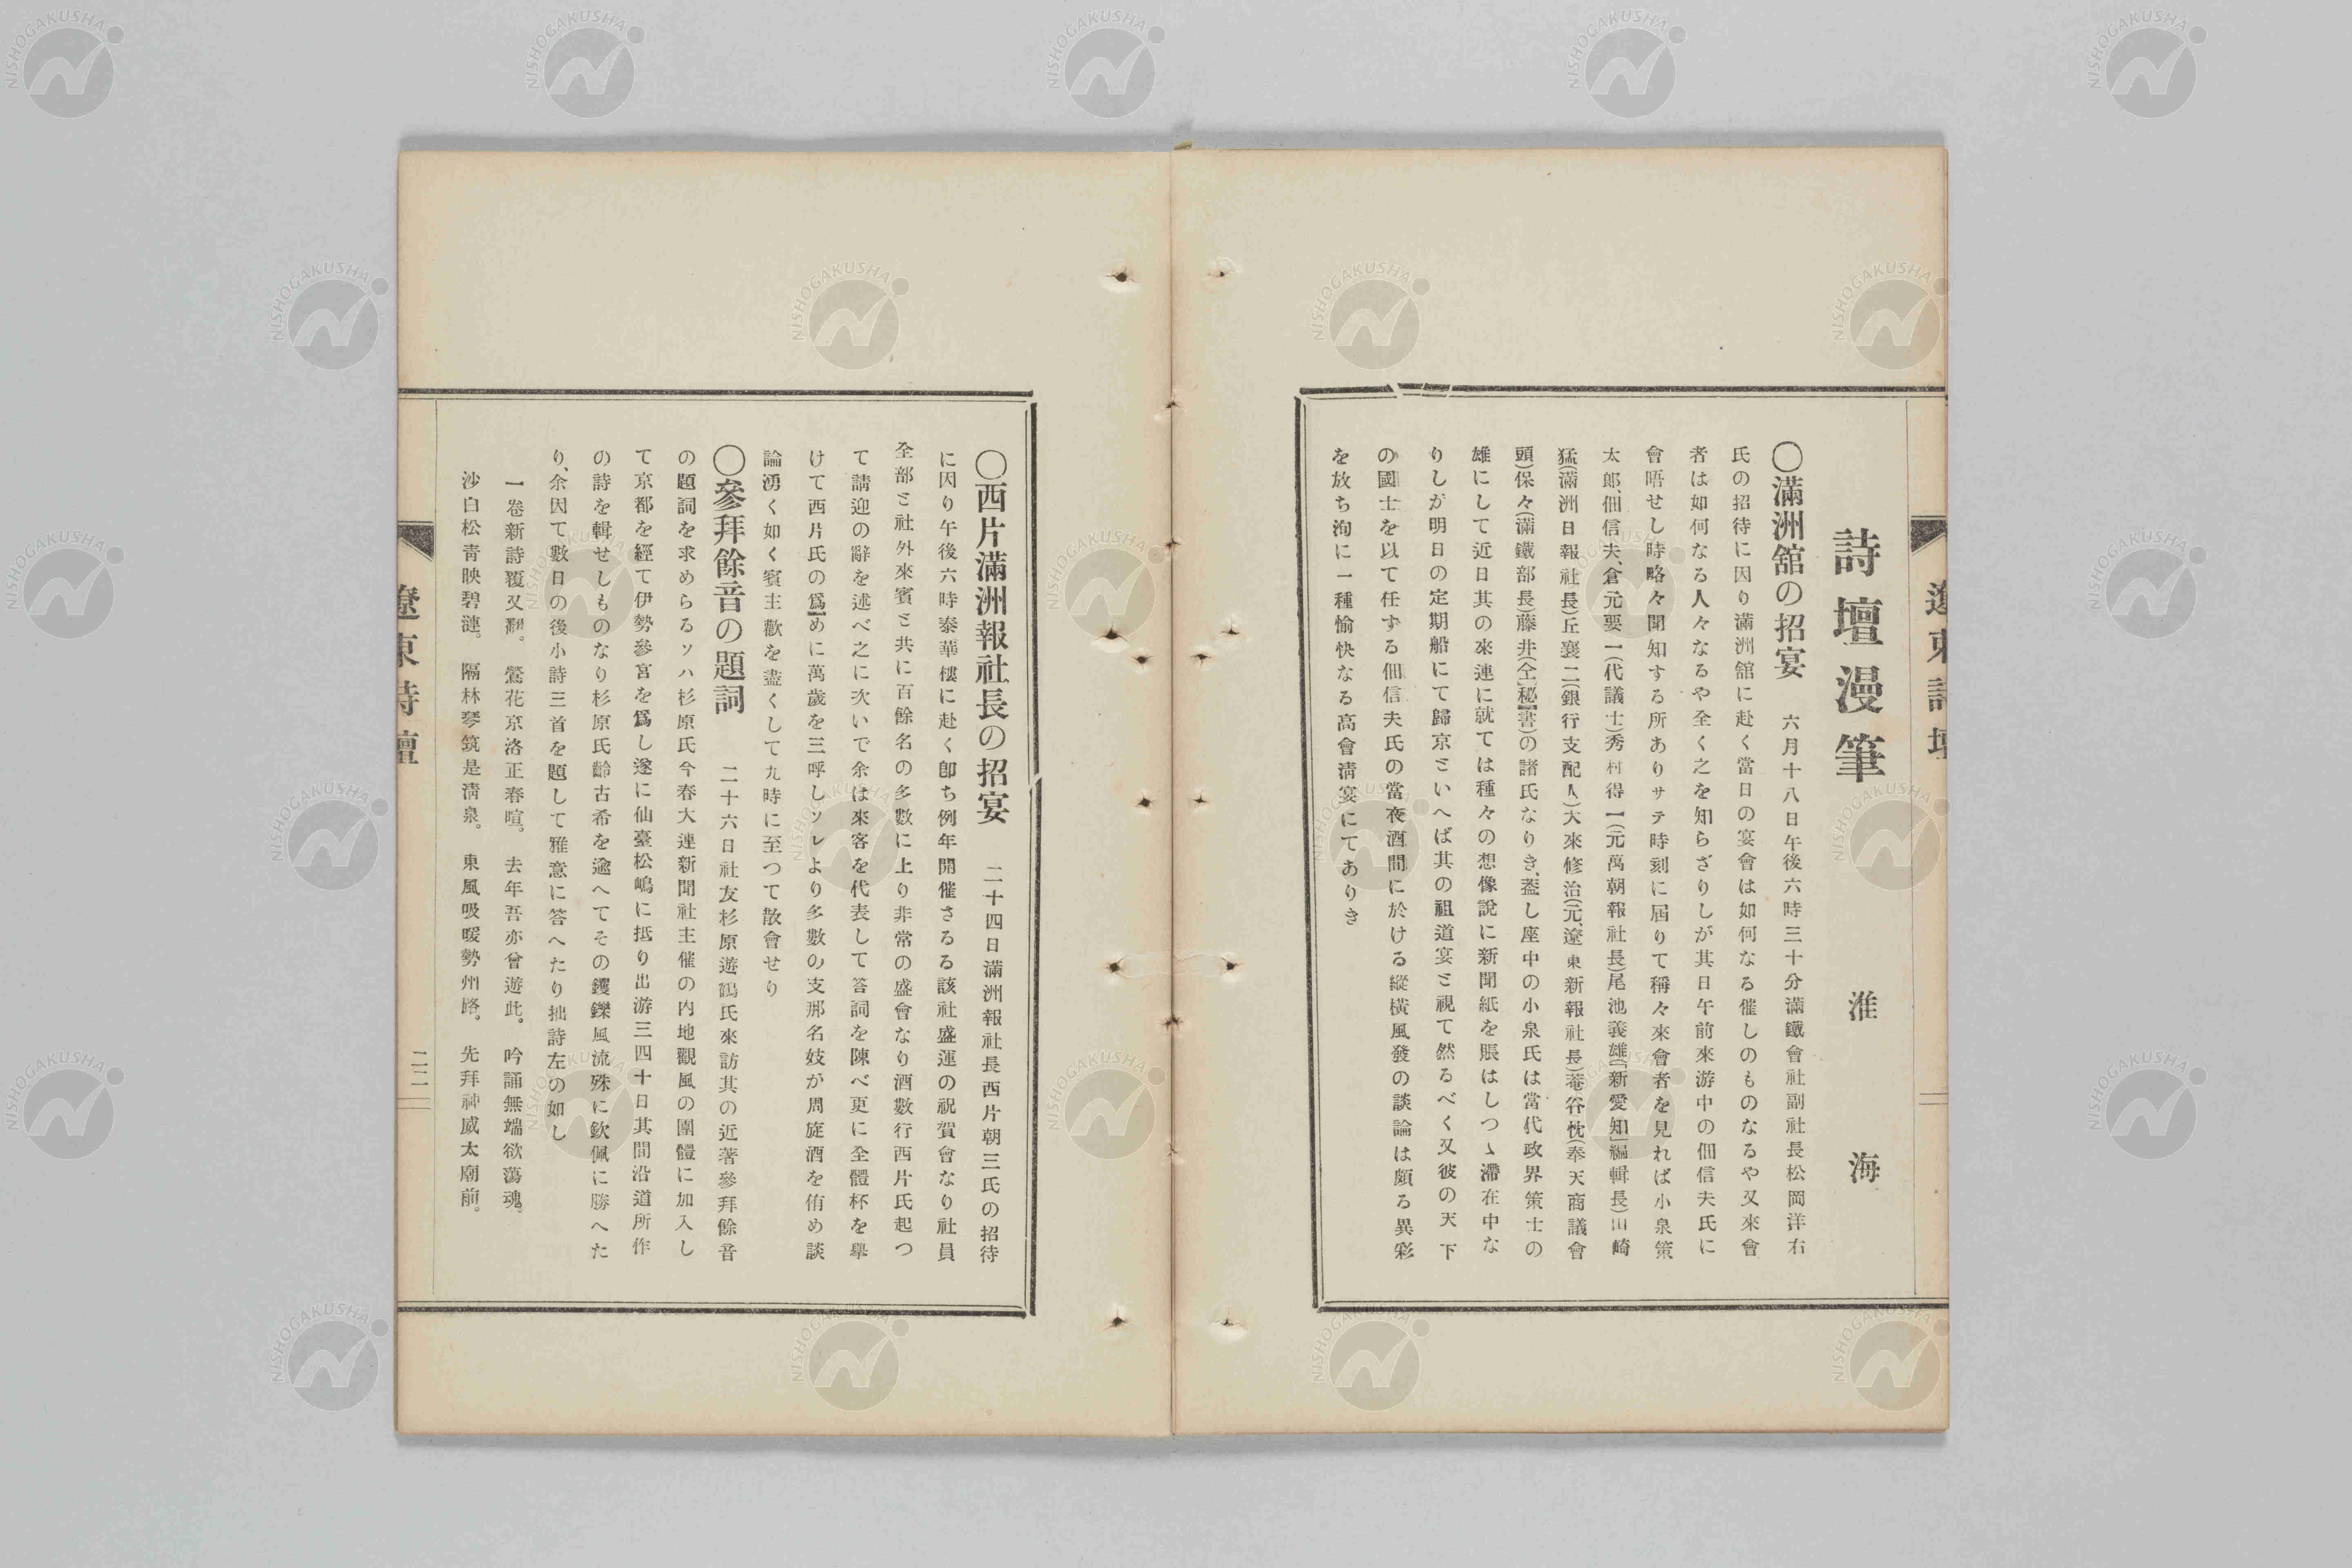 遼東詩壇
詩壇漫筆　淮海
〇滿洲舘の招宴　六月十八日午後六時三十分滿鐵會社副社長松岡洋右
氏の招待に因り滿洲舘に赴く當日の宴會は如何なる催しのものなるや又來會
者は如何なる人々なるや全く之を知らざりしが其日午前來游中の佃信夫氏に
會晤せし時略々聞知する所ありサテ時刻に屆りて稱々來會者を見れば小泉策
太郎、佃信夫、倉元要一(代議士)秀村得一(元萬朝報社長)尾池義雄(「新愛知」編輯長)山崎
猛(滿洲日報社長)丘襄二(銀行支配人)大來修治(元、遼東新報社長)菴谷忱(奉天商議會
頭)保々(滿鐵部長)藤井(仝秘書)の諸氏なりき、蓋し座中の小泉氏は當代政界策士の
雄にして近日其の來連に就ては種々の想像說に新聞紙を賑はしつゝ滯在中な
りしが明日の定期船にて歸京といへば其の祖道宴と視て然るべく又彼の天下
の國士を以て任ずる佃信夫氏の當夜酒間に於ける縱橫風發の談論は頗る異彩
を放ち洵に一種愉快なる高會淸宴にてありき
〇西片滿洲報社長の招宴　二十四日滿洲報社長西片朝三氏の招待
に因り午後六時泰華樓に赴く卽ち例年開催さるる該社盛運の祝賀會なり社員
全部と社外來賓と共に百餘名の多數に上り非常の盛會なり酒數行西片氏起つ
て請迎の辭を述べ之に次いで余は來客を代表して答詞を陳べ更に全體杯を擧
けて西片氏の爲めに萬歲を三呼しソレより多數の支那名妓が周旋酒を侑め談
論湧く如く賓主歡を盡くして九時に至つて散會せり
〇參拜餘音の題詞　二十六日社友杉原遊鶴氏來訪其の近著參拜餘音
の題詞を求めらるソハ杉原氏今春大連新聞社主催の內地觀風の團體に加入し
て京都を經て伊勢參宮を爲し遂に仙臺松嶋に抵り出游三四十日其間沿道所作
の詩を輯せしものなり杉原氏齡古希を逾へてその钁鑠風流殊に欽佩に勝へた
り、余因て數日の後小詩三首を題して雅意に答へたり拙詩左の如し
一卷新詩覆又翻。鶯花京洛正春暄。去年吾亦曾遊此。吟誦無端欲蕩魂。
沙白松靑映碧漣。隔林琴筑是淸泉。東風吸暖勢州路。先拜神威太廟前。
遼東詩壇
二二